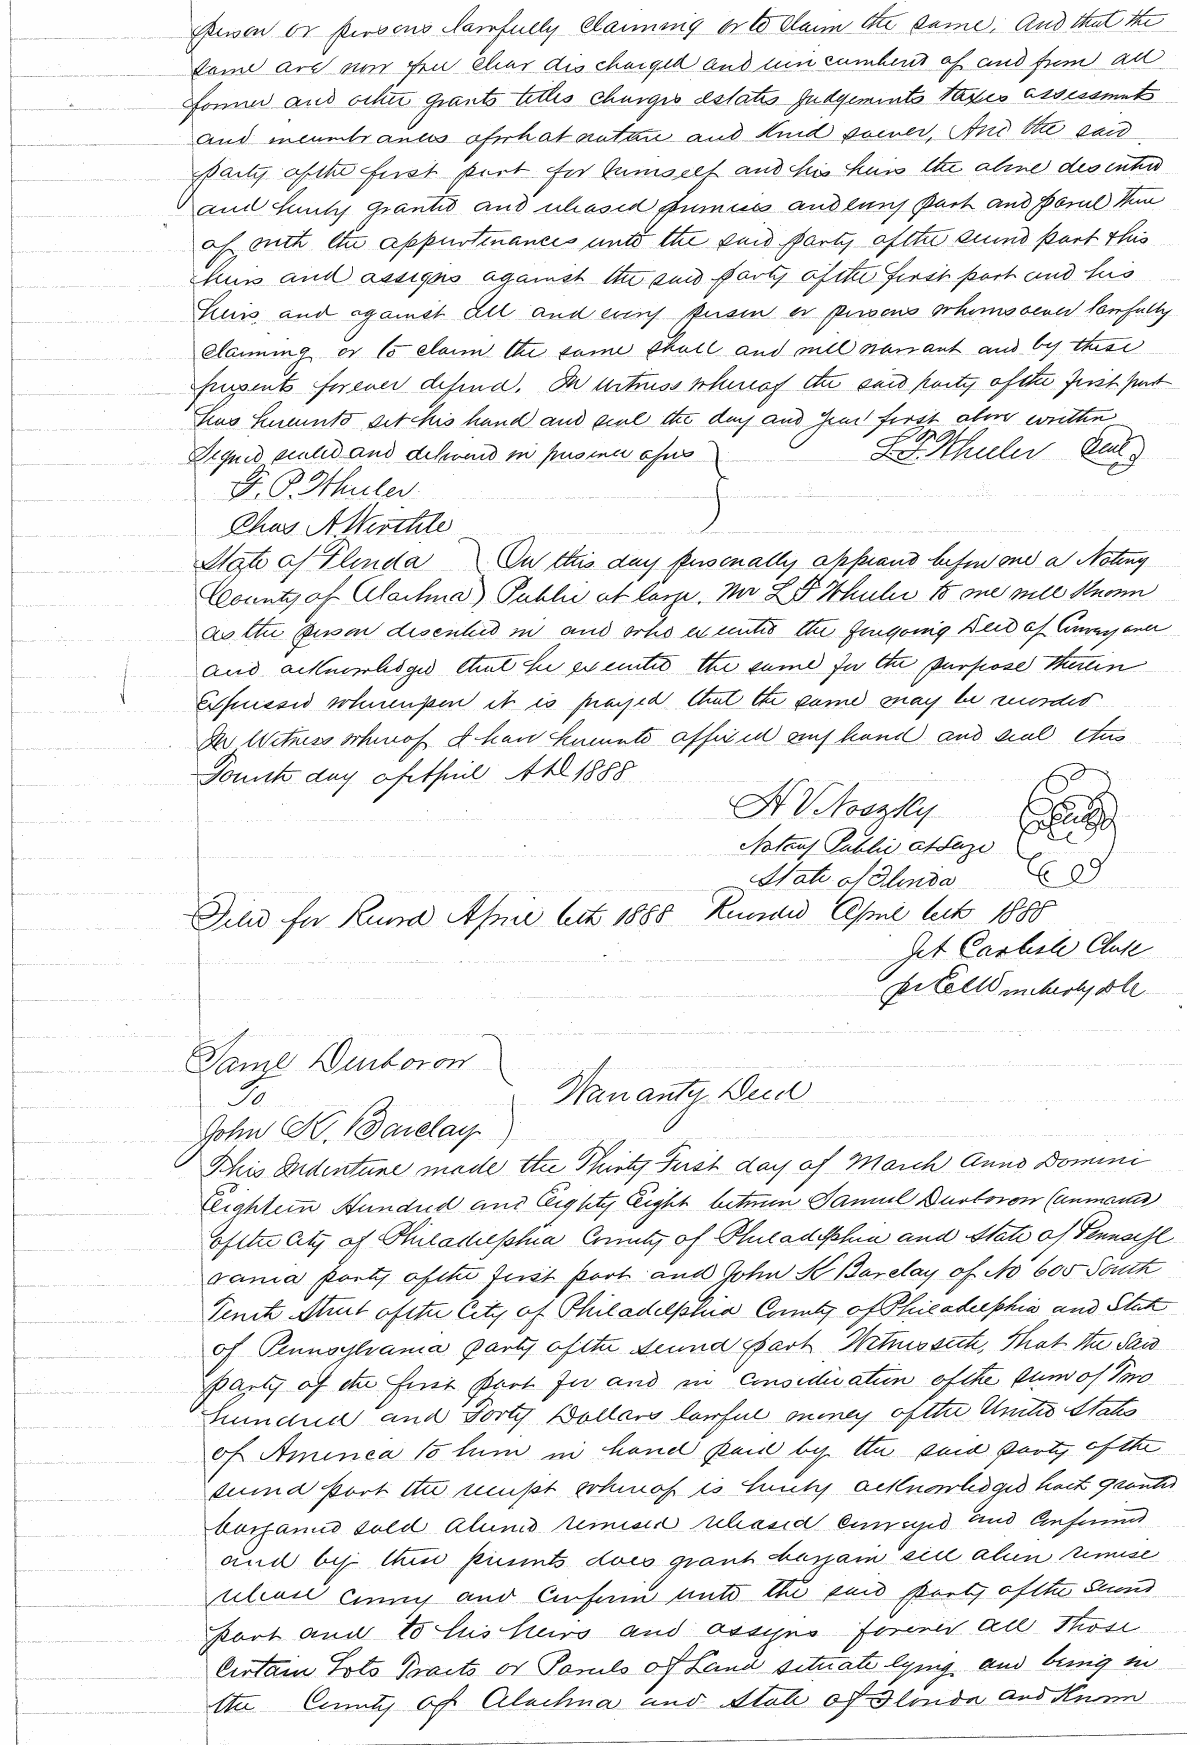 person or persons lawfully claiming or to claim the same, And that the
same are now free clear discharged and unincumbered of and from all
former and other grants titles charges estates Judgements taxes assessments
and incumbrances of what nature and kind soever, And the said
party of the first part for himself and his heirs the above described
and hereby granted and released premises and every part and parcel there
of with the appurtenances unto the said party of the second part & his
heirs and assigns against the said party of the first part and his
heirs and against all and every person or persons whomsoever lawfully
claiming or to claim the same shall and will warrant and by these
presents forever defend. In witness whereof the said party of the first part
has hereunto set his hand and seal the day and year first above written
Signed sealed and delivered in presence of us
L. F. Wheeler Seal
F. P. Wheeler
Chas A. Werthle
State of Florida On this day personally appeared before me a Notary
County of Alachua Public at large. Mr L F Wheeler to me well known
as the person described in and who executed the foregoing Deed of Conveyance
and acknowledged that he executed the same for the purpose therein
expressed whereupon it is prayed that the same may be recorded
In Witness whereof I have hereunto affixed my hand and seal this
Fourth day of April A D 1888
H V Noszky
Notary Public at Large
State of Florida
Filed for Record April 6th 1888 Recorded April 6th 1888
Jet Carlisle Clerk
per
Saml Durborow
To
Warranty Deed
John K. Barclay
This Indenture made the Thirty First day of March Anno Domini
Eighteen Hundred and Eighty Eight between Samuel Durborow (unmarried
of the City of Philadelphia County of Philadelphia and State of Pennsyl
vania party of the first part and John K Barclay of No 605 South
Tenth Street of the City of Philadelphia County of Philadelphia and State
of Pennsylvania party of the second part Witnesseth, That the Said
party of the first part for and in consideration of the sum of Two
hundred and Forty Dollars lawful money of the United States
of America to him in hand paid by the said party of the
second part the receipt whereof is hereby acknowledged hath granted
bargained sold aliened remised released conveyed and confirmed
and by these presents does grant bargain sell alien remise
release convey and confirm unto the said party of the second
part and to his heirs and assigns forever all those
Certain Lots Tracts or Parcels of Land situate lying and being in
the County of Alachua and State of Florida and known